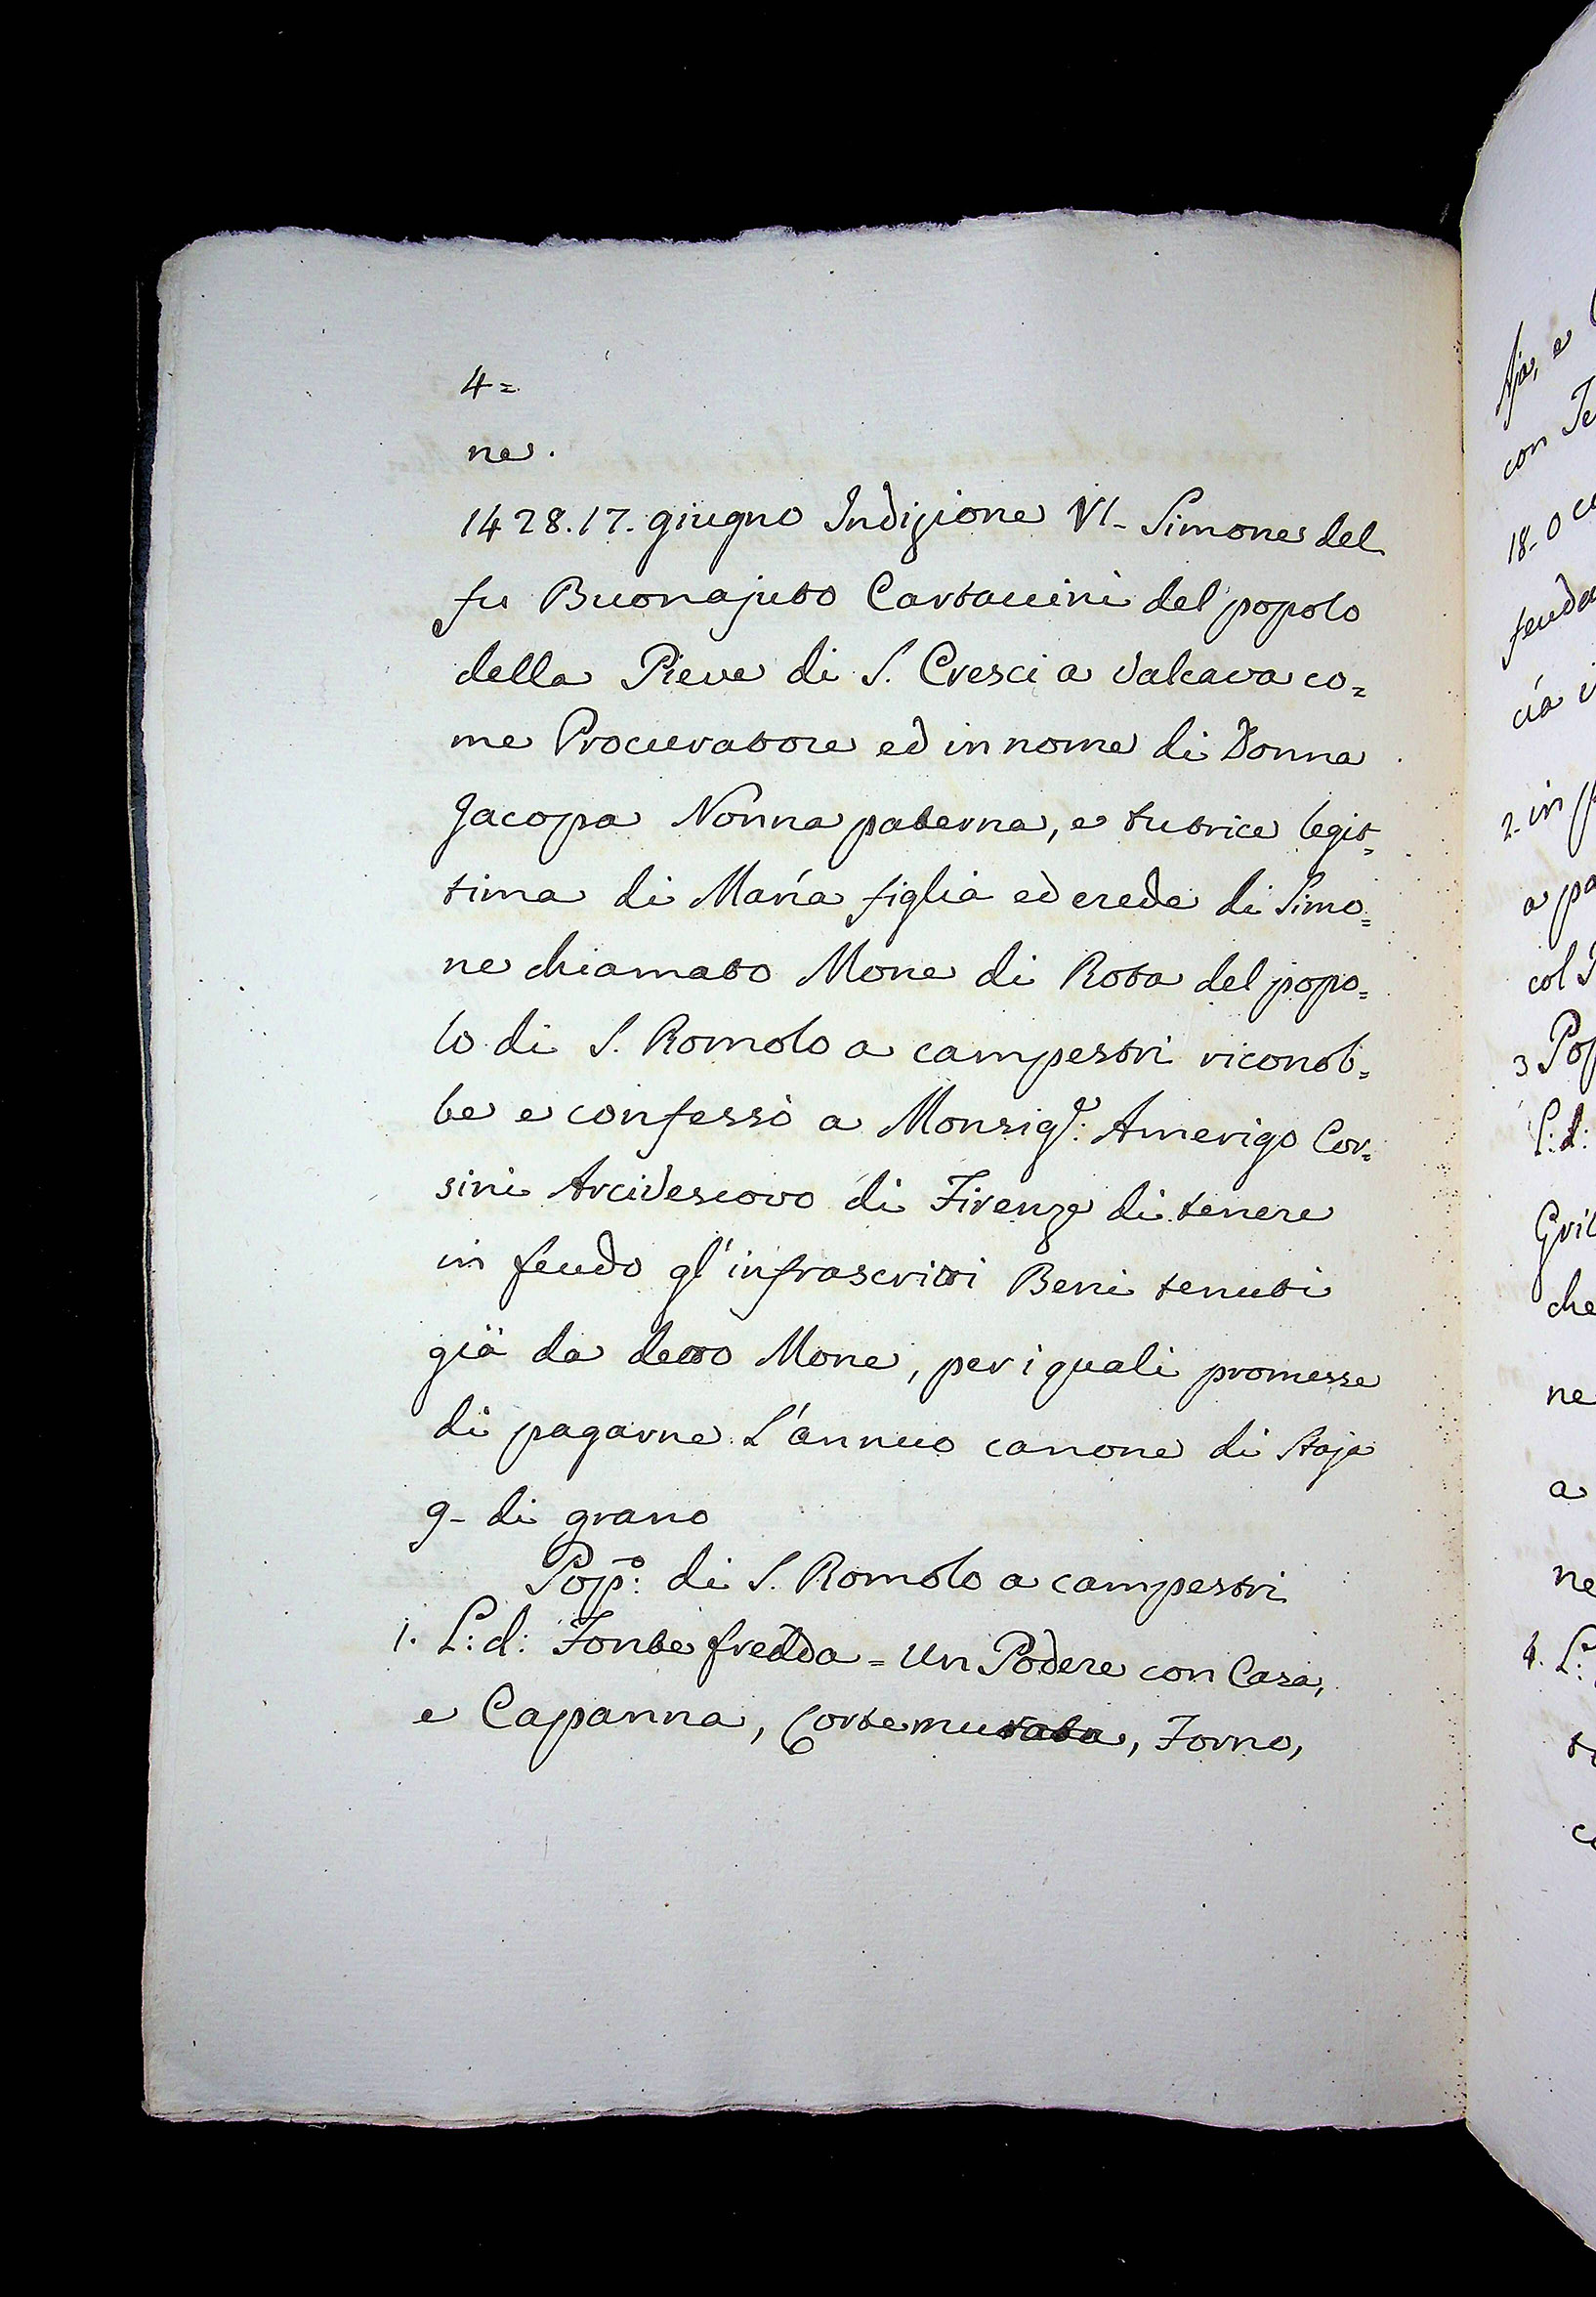 4=
ne.
1428.17. giugno Indizione VI- Simone del
fu Buonajuto Cartaccini del popolo
della Pieve di S. Cresci a Valcava co=
me Procuratore ed in nome di Donna
Jacopa Nonna paterna, e tutrice legit=
tima di Maria figlia ed erede di Simo=
ne chiamato Mone di Rota del popo=
lo di S. Romolo a campestri riconob=
be e confessò a Monsigr: Amerigo Cor=
sini Arcivescovo di Firenze di tenere
in feudo gl'infrascritti Beni tenuti
già da detto Mone, per i quali promesse
di pagarne L'annuo canone di Staja
9- di grano
Popo: di S. Romolo a campestri
1. L:d: Fonte fredda = Un Podere con Casa,
e Capanna, Corte murata, Forno,
Aja, e
con Te
18-
feuda
cia
2- in
a pa
col
3 Pop
L:d:
che
ne
a
ne
4. L: